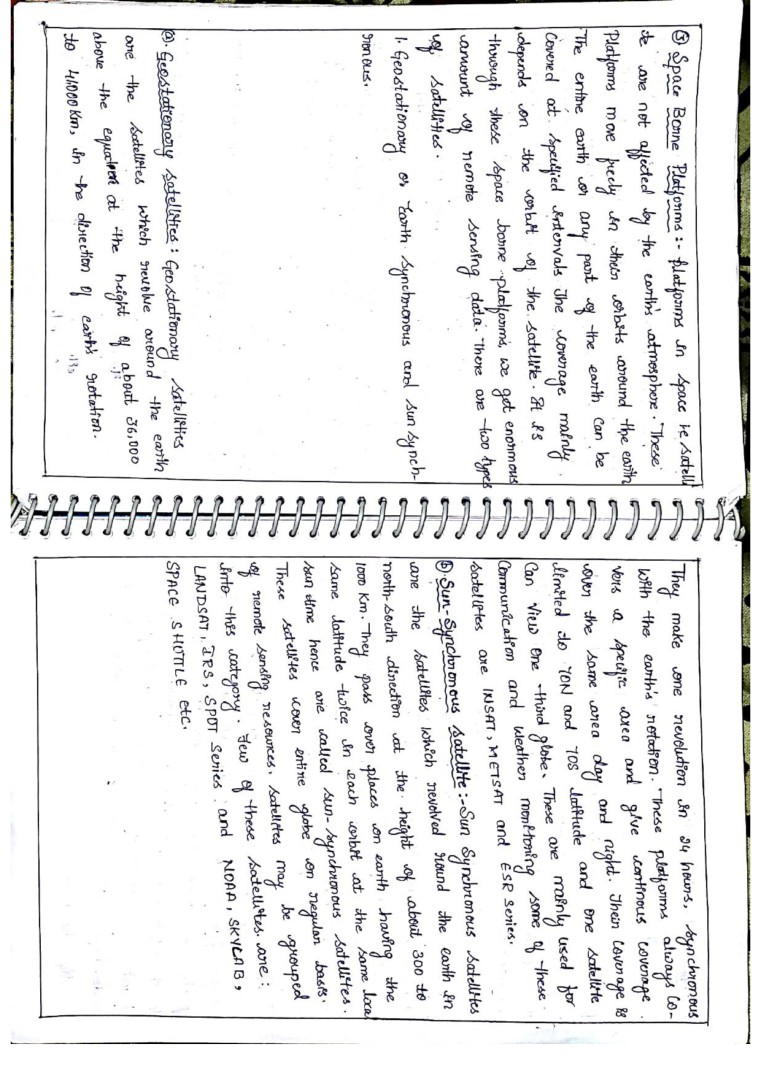 ③ Space Borne Platforms:- Platforms in space ie satelli
te are not affected by the earth's atmosphere. These
Platforms move freely in their orbits around the earth
The entire earth or any part of the earth can be
Covered at specified intervals The coverage mainly
depends on the orbit of the satellite. It is
through these space borne platforms, we get enormous
amount of remote sensing data. There are two types
of satellites.
1. Geostationary or Earth synchronous and sun synch-
ronous.
ⓐ. Geostationary satellites: Geostationary satellites
are the satellites which revolve around the earth
above the equator at the height of about 36,000
to 41000 Km, in the direction of earth's rotation.
They make one revolution in 24 hours, synchronous
with the earth's rotation. These platforms always co-
vers a specific area and give continous coverage.
over the same area day and night. Their coverage is
limited to 70N and 70S latitude and one satellite
Can view one-third globe. These are mainly used for
Communication and weather monitoring some of these
satellites are INSAT, METSAT and ESR series.
ⓑ. Sun-Synchronous satellite:- Sun Synchronous satellites
are the satellites which revolved round the earth in
north-south direction at the height of about 300 to
1000 Km. They pass over places on earth having the
same latitude twice in each orbit at the same local
sun time hence are called sun-synchronous satellites.
These satellites cover entire globe on regular basis.
of remote sensing resources, satellites may be grouped
into this category. Few of these satellites are:
LANDSAT, IRS, SPOT Series and NOAA, SKYLAB,
SPACE SHUTTLE etc.